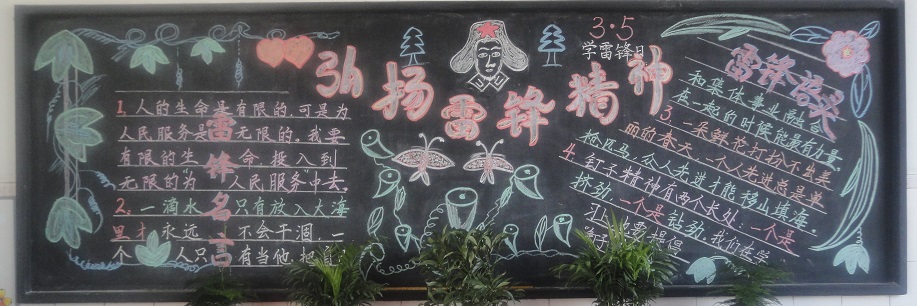 3·5
学雷锋日
弘扬雷锋精神
雷锋名言
1. 人的生命是有限的,可是为
人民服务是无限的,我要
有限的生命,投入到
无限的“为人民服务”中去。
2. 一滴水只有放入大海
里才永远不会干涸,一
个人只有当他把自
雷锋语录
和集体事业融合
在一起的时候能最有力量。
3. 一朵鲜花打扮不出美
丽的春天,一个人先进总是单
枪匹马,众人先进才能移山填海。
4. 钉子精神有两个长处,一个是
挤劲,一个是钻劲,我们在学
习上也要提得